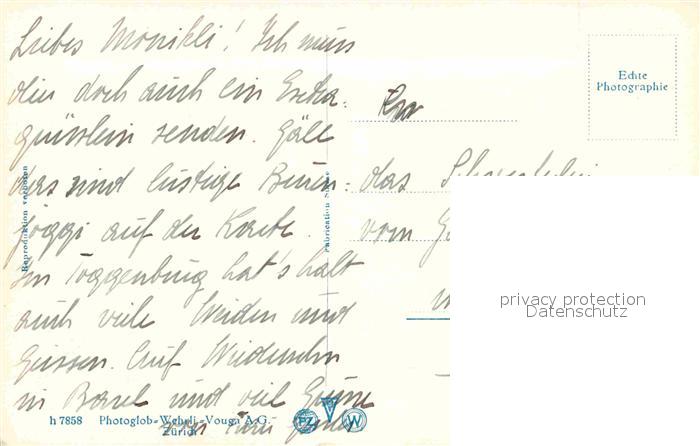 Liebes Monikli! Ich muss
dir doch auch ein Extra-
grüsslein senden. Gäll
das sind lustige Buren-
joggi auf der Karte.
Im Toggenburg hat's halt
auch viele Weiden und
Geissen. Auf Wiedersehn
in Basel und viel Grüsse
von
Für
das
vom
Echte
Photographie
Reproduction verboten
Fabrication Suisse
privacy protection
Datenschutz
h 7858 Photoglob-Wehrli-Vouga A.G.
Zürich
PZ V W